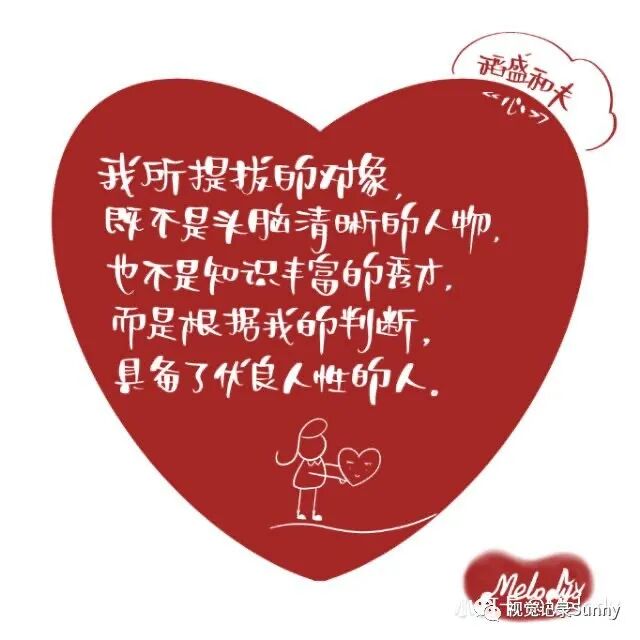 稻盛和夫
《心》
我所提拔的对象,
既不是头脑清晰的人物,
也不是知识丰富的秀才,
而是根据我的判断,
具备了优良人性的人.
Melody
视觉记录Sunny